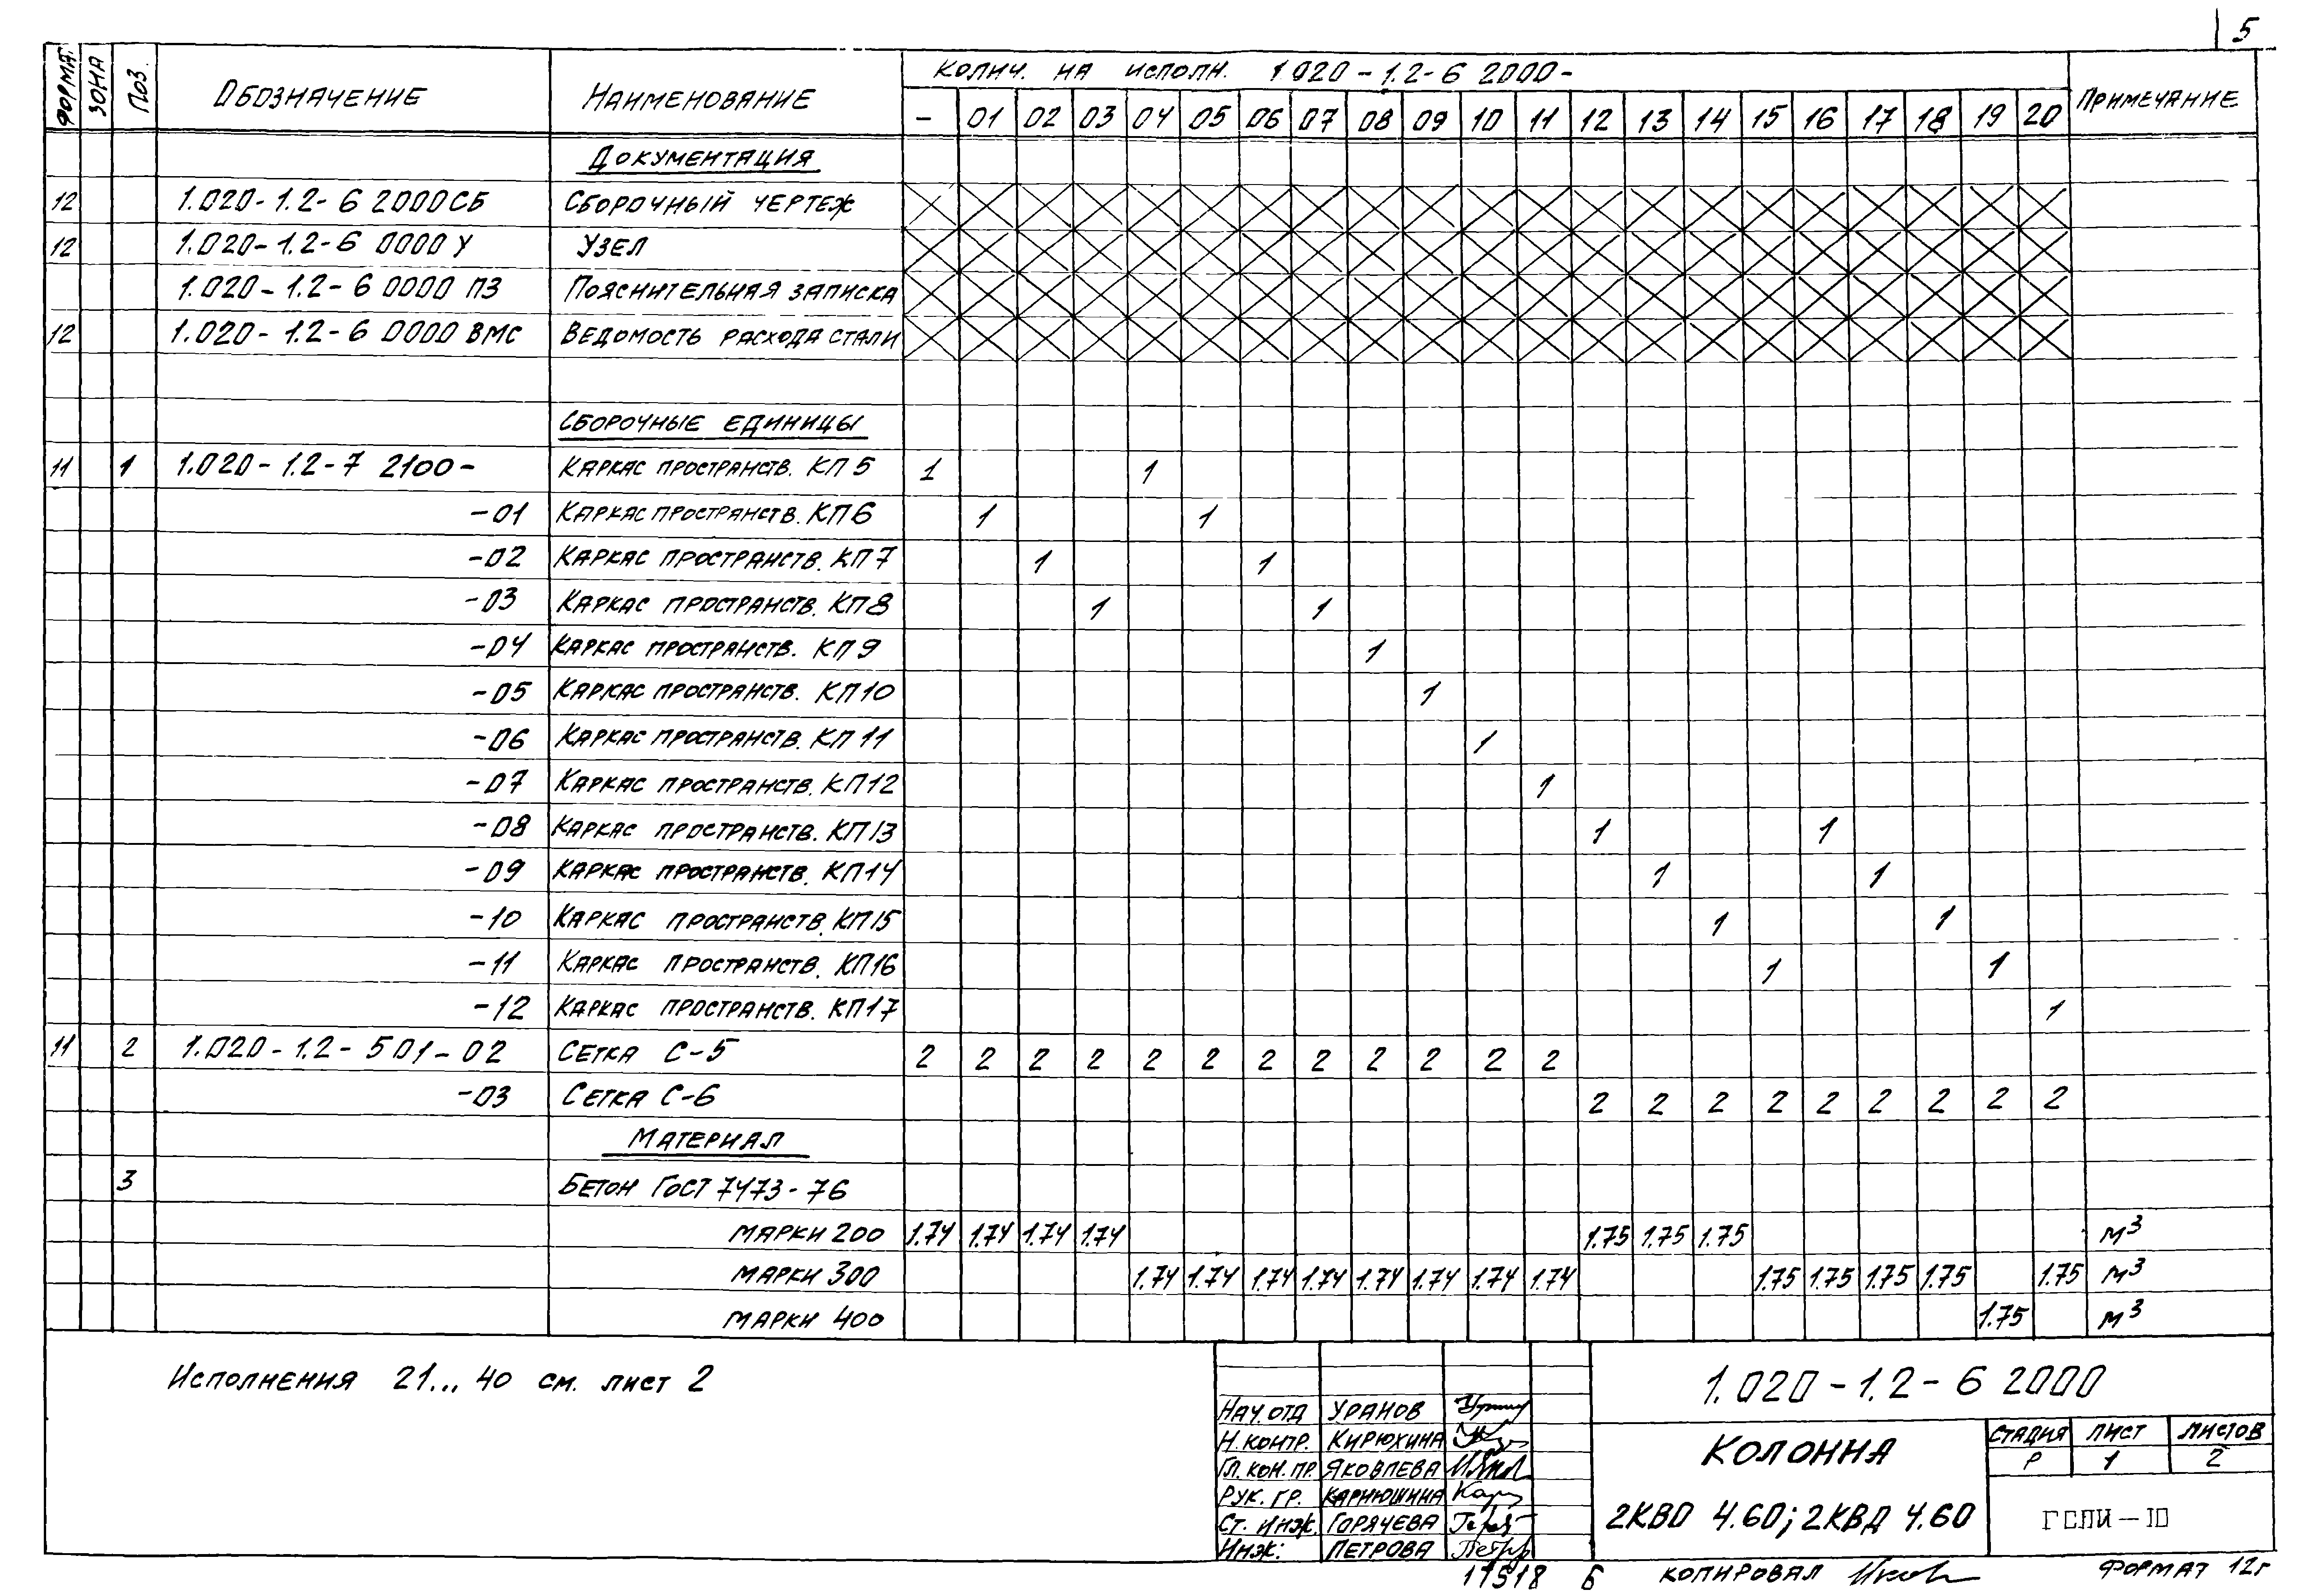 5
ФОРМАТ ЗОНА ПОЗ. ОБОЗНАЧЕНИЕ НАИМЕНОВАНИЕ КОЛИЧ. НА ИСПОЛН. 1.020-1.2-6 2000- ПРИМЕЧАНИЕ
- 01 02 03 04 05 06 07 08 09 10 11 12 13 14 15 16 17 18 19 20
ДОКУМЕНТАЦИЯ
12 1.020-1.2-6 2000СБ СБОРОЧНЫЙ ЧЕРТЕЖ
12 1.020-1.2-6 0000У УЗЕЛ
1.020-1.2-6 0000 ПЗ ПОЯСНИТЕЛЬНАЯ ЗАПИСКА
12 1.020-1.2-6 0000 ВМС ВЕДОМОСТЬ РАСХОДА СТАЛИ
СБОРОЧНЫЕ ЕДИНИЦЫ
11 1 1.020-1.2-7 2100- КАРКАС ПРОСТРАНСТВ. КП 5 1 1
-01 КАРКАС ПРОСТРАНСТВ. КП6 1 1
-02 КАРКАС ПРОСТРАНСТВ. КП 7 1 1
-03 КАРКАС ПРОСТРАНСТВ. КП8 1 1
-04 КАРКАС ПРОСТРАНСТВ. КП 9 1
-05 КАРКАС ПРОСТРАНСТВ. КП10 1
-06 КАРКАС ПРОСТРАНСТВ. КП 11 1
-07 КАРКАС ПРОСТРАНСТВ. КП12 1
-08 КАРКАС ПРОСТРАНСТВ. КП13 1 1
-09 КАРКАС ПРОСТРАНСТВ. КП14 1 1
-10 КАРКАС ПРОСТРАНСТВ. КП15 1 1
-11 КАРКАС ПРОСТРАНСТВ. КП16 1 1
-12 КАРКАС ПРОСТРАНСТВ. КП17 1
11 2 1.020-1.2-501-02 СЕТКА С-5 2 2 2 2 2 2 2 2 2 2 2 2
-03 СЕТКА С-6 2 2 2 2 2 2 2 2 2
МАТЕРИАЛ
3 БЕТОН ГОСТ 7473-76
МАРКИ 200 1.74 1.74 1.74 1.74 1.75 1.75 1.75 м³
МАРКИ 300 1.74 1.74 1.74 1.74 1.74 1.74 1.74 1.74 1.75 1.75 1.75 1.75 1.75 м³
МАРКИ 400 1.75 м³
ИСПОЛНЕНИЯ 21... 40 СМ. ЛИСТ 2
1.020-1.2-6 2000
НАЧ. ОТД УРАНОВ
Н. КОНТР. КИРЮХИНА
ГЛ. КОН. ПР. ЯКОВЛЕВА
РУК. ГР. КАРНЮШИНА
СТ. ИНЖ. ГОРЯЧЕВА
ИНЖ: ПЕТРОВА
КОЛОННА
2КВО 4.60; 2КВД 4.60
СТАДИЯ ЛИСТ ЛИСТОВ
Р 1 2
ГСПИ-10
17518 Б КОПИРОВАЛ ФОРМАТ 12г